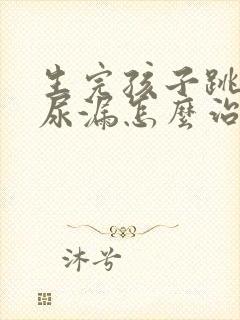 生完孩子跳
尿漏怎麼治
沐兮